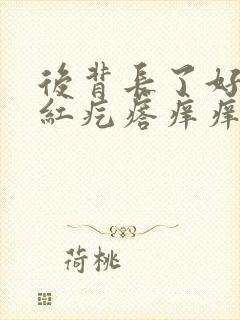 後背長了好
紅疙瘩痒痒
荷桃